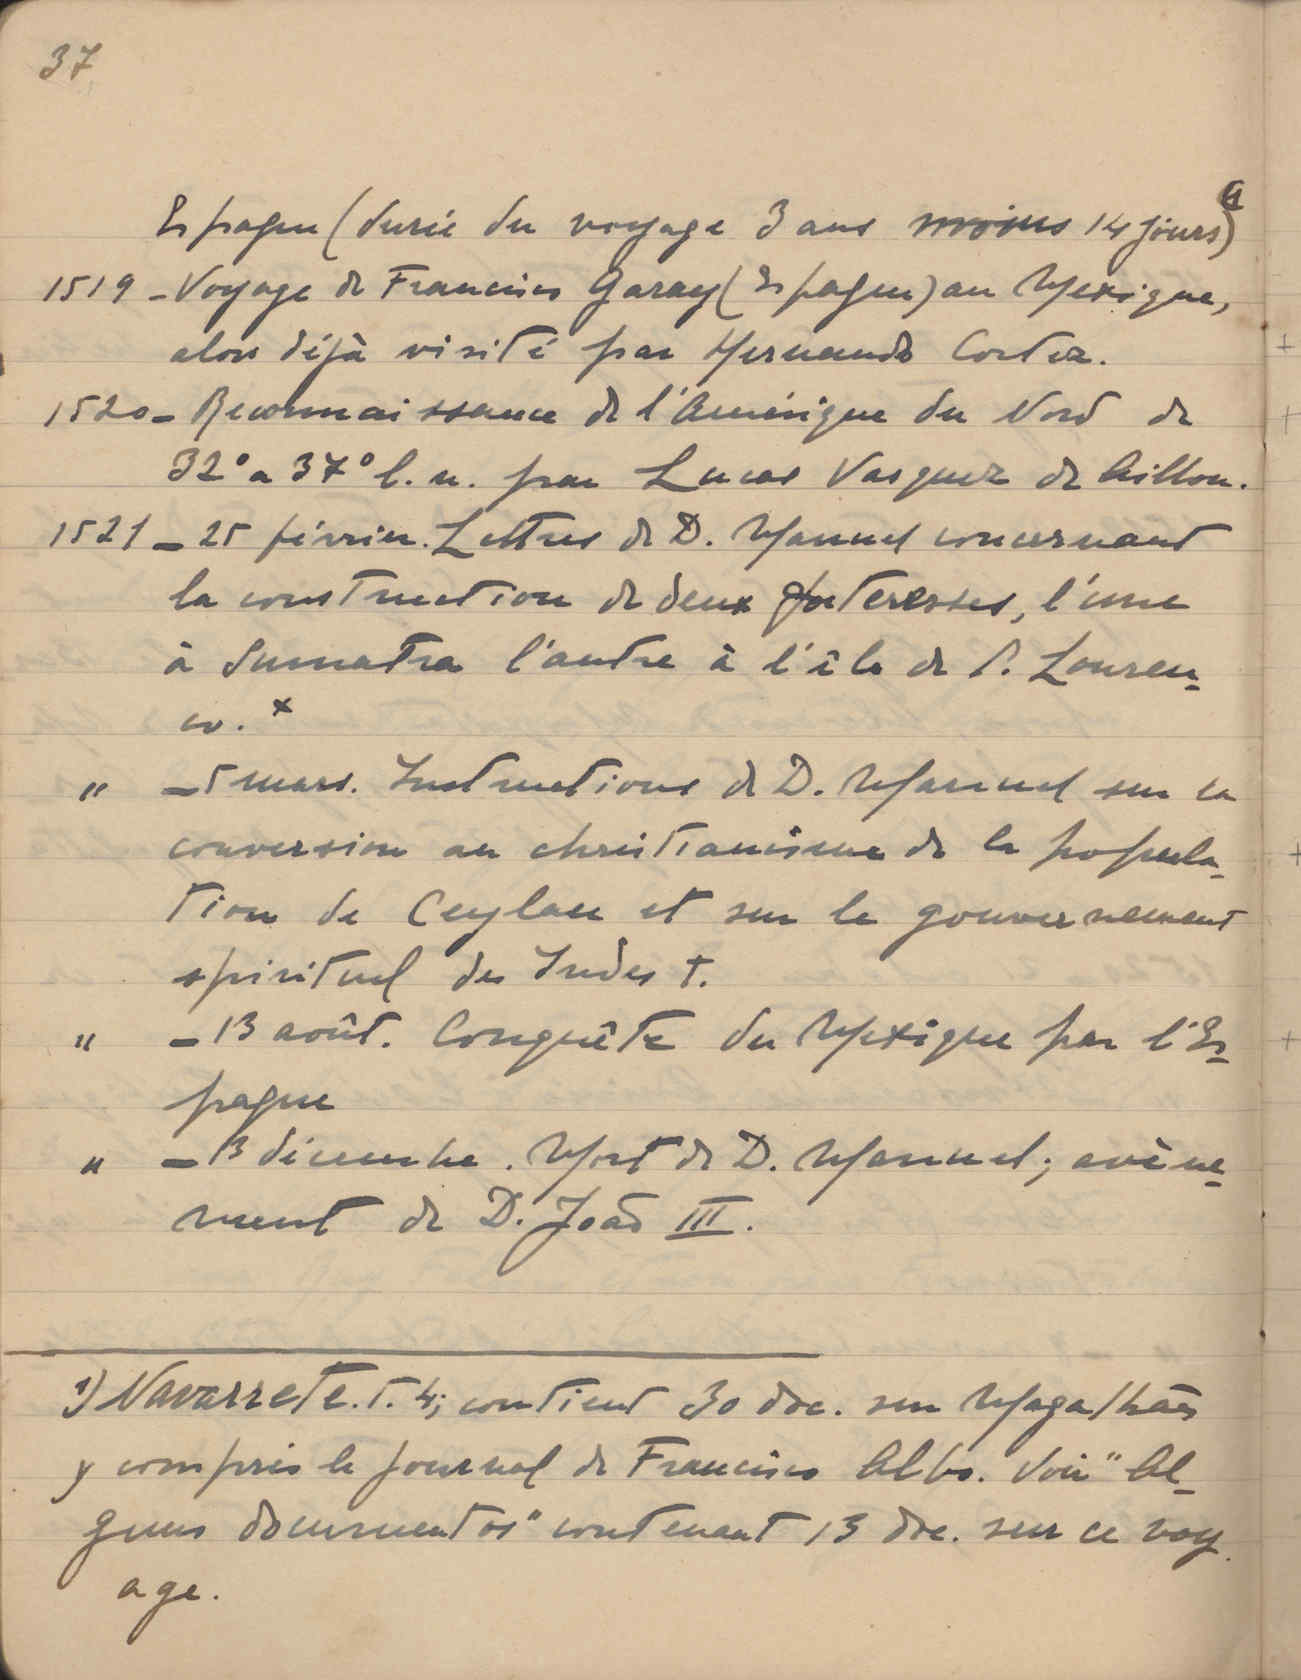 37
Espagne (durée du voyage 3 ans moins 14 jours)
1519 - Voyage de Francisco Garay (Espagne) au Mexique,
alors déjà visité par Hernando Cortez.
1520 - Reconnaissance de l'Amérique du Nord de
32° a 37° l. n. par Lucas Vasquez de Aillon.
1521 - 25 février. Lettres de D. Manuel concernant
la construction de deux forteresses, l'une
à Sumatra l'autre à l'île de S. Louren-
ço. x
" - 5 mars. Instructions de D. Manuel sur la
conversion au christianisme de la popula-
tion de Ceylan et sur le gouvernement
spirituel des Indes †.
" - 13 août. Conquête du Mexique par l'Es-
pagne
" - 13 décembre. Mort de D. Manuel; avène-
ment de D. João III.
1) Navarrete. T. 4; contient 30 doc. sur Magalhães
y compris le journal de Francisco Albo. Voir "Al-
guns documentos" contenant 13 doc. sur ce voy-
age.